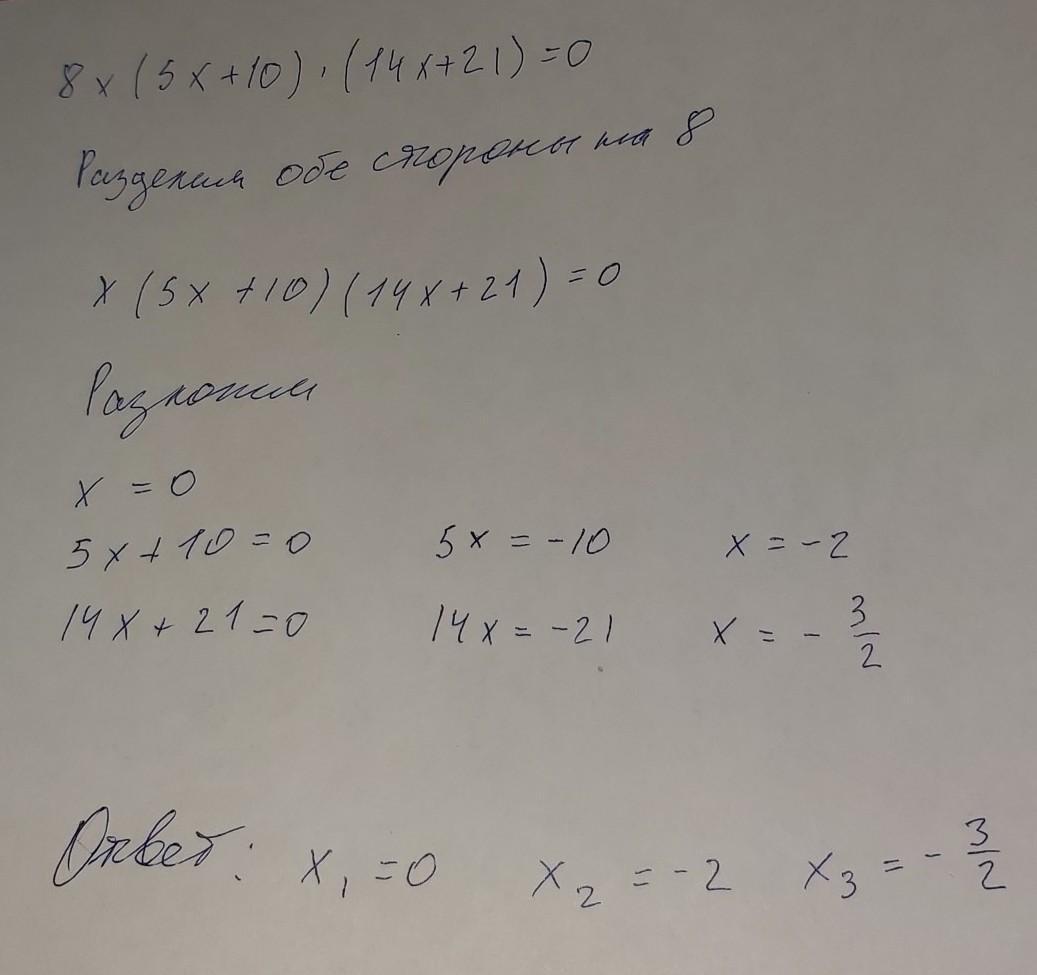 8x(5x+10)·(14x+21)=0
Разделим обе стороны на 8
x(5x+10)(14x+21)=0
Разложим
x = 0
5x+10=0 5x = -10 x = -2
14x+21=0 14x = -21 x = - 3/2
Ответ: x₁ =0 x₂ = -2 x₃ = - 3/2